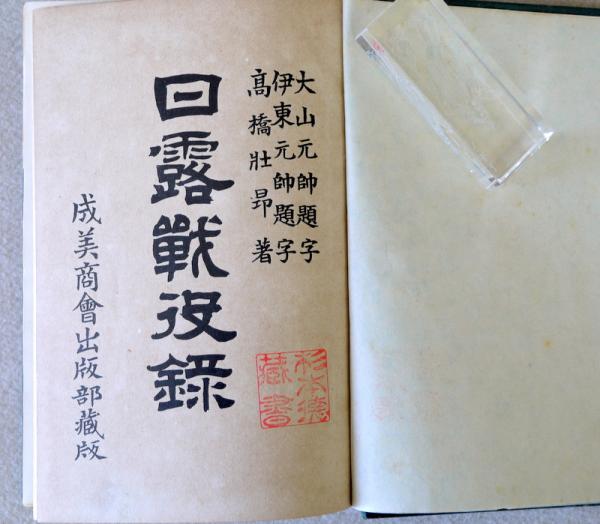 大山元帥題字
伊東元帥題字
高橋壯昂著
日露戰役錄
成美商會出版部藏版
杉本
藏書